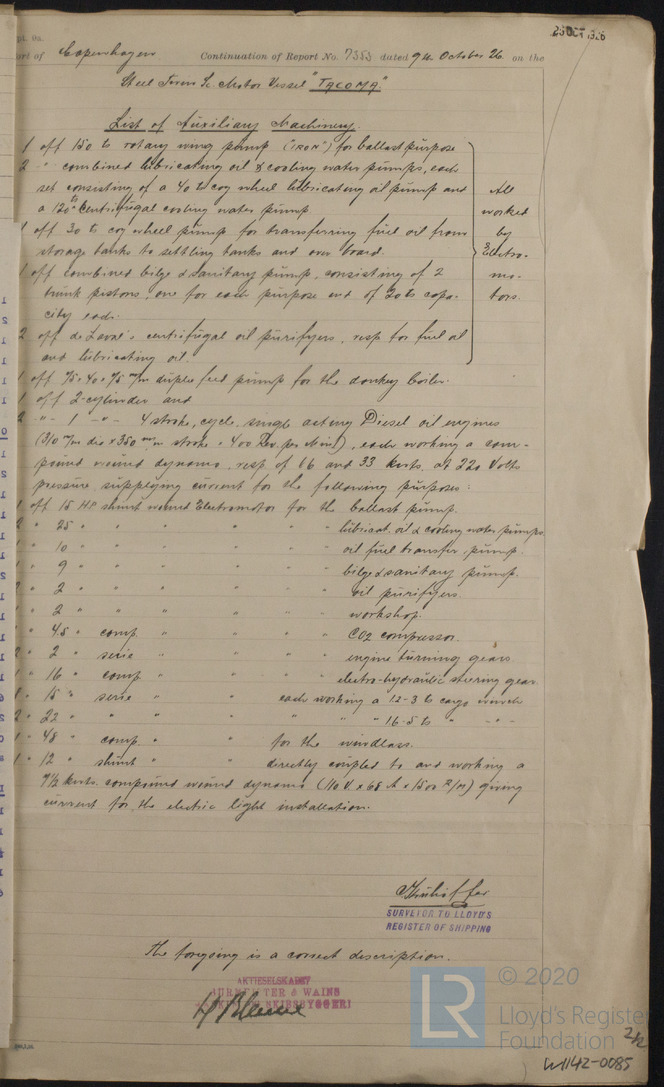 25 OCT 1926
Rpt. 9a.
Port of Copenhagen Continuation of Report No. 7383 dated 9th October 26 on the
Steel Twin Sc Motor Vessel "TACOMA"
List of Auxiliary Machinery.
1 off 150 to rotary wing pump ("IRON") for ballast purpose
2 -"- combined lubricating oil & cooling water pumps, each
set consisting of a 40 to cog wheel lubricating oil pump and
a 120 to centrifugal cooling water pump
1 off 30 to cog wheel pump for transferring fuel oil from
storage tanks to settling tanks and over board.
1 off combined bilge & sanitary pump, consisting of 2
trunk pistons, one for each purpose and of 20 to capa-
city each.
2 off de Laval's centrifugal oil purifyers, resp for fuel oil
and lubricating oil.
All
worked
by
Electro-
mo-
tors.
1 off 75 × 40 × 75 m/m duplex feed pump for the donkey boiler.
1 off 2-cylinder and
2 -"- 1 -"- 4 stroke, cycle, single acting Diesel oil engines
(310 m/m dia × 350 m/m stroke × 400 Rev. per Minut), each working a com-
pound wound dynamo, resp of 66 and 33 kwts. at 220 Volts
pressure supplying current for the following purposes:
1 off 15 HP shunt wound Electromotor for the ballast pump.
2 " 25 " " " " " " lubricat. oil & cooling water pumps
1 " 10 " " " " " " oil fuel transfer pump.
1 " 9 " " " " " " bilge & sanitary pump.
2 " 2 " " " " " " oil purifyers.
1 " 2 " " " " " " workshop.
1 " 4.5 " comp. " " " " CO2 compressor.
2 " 2 " serie " " " " engine turning gears
1 " 16 " comp " " " " electro-hydraulic steering gear
" 15 " serie " " each working a 1.2-3 to cargo winch
2 " 22 " " " " " " " 16-5 to " -"-
1 " 48 " comp. " " for the windlass.
1 " 12 " shunt " " directly coupled to and working a
7½ kwts. compound wound dynamo (110 V. × 68 A × 1500 R/M) giving
current for the electric light installation.
SURVEYOR TO LLOYD'S
REGISTER OF SHIPPING
The foregoing is a correct description.
AKTIESELSKABET
BURMEISTER & WAINS
MASKIN- OG SKIBSBYGGERI
LR
© 2020
Lloyd's Register
Foundation
2/2
W1142-0085